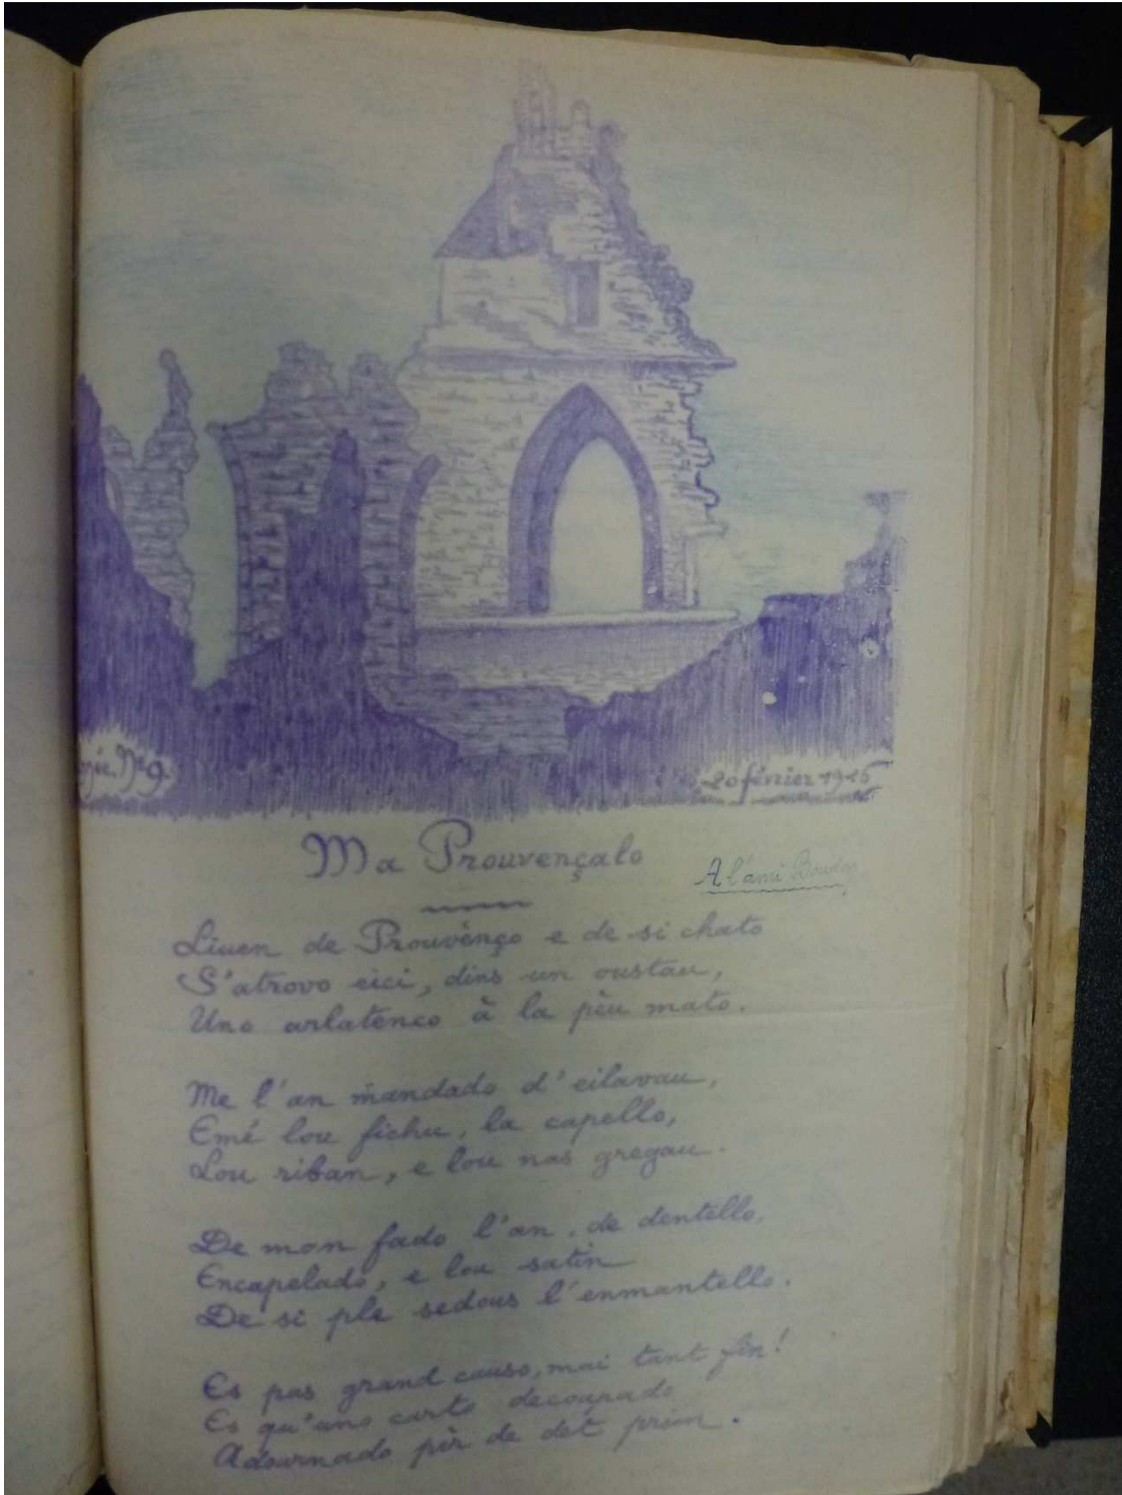 Nº 9.
20 février 1916
Ma Prouvençalo
A l'ami
Liuen de Prouvènço e de si chato
S'atrovo eici, dins un oustau,
Uno arlatenco à la pèu mato.
Me l'an mandado d'eilavau,
Emé lou fichu, la capello,
Lou riban, e lou nas gregau.
De man fado l'an, de dentello,
Encapelado, e lou satin
De si ple sedous l'enmantello.
Es pas grand causo, mai tant fin!
Es qu'uno carto decoupado
Adournado pèr de det prim.